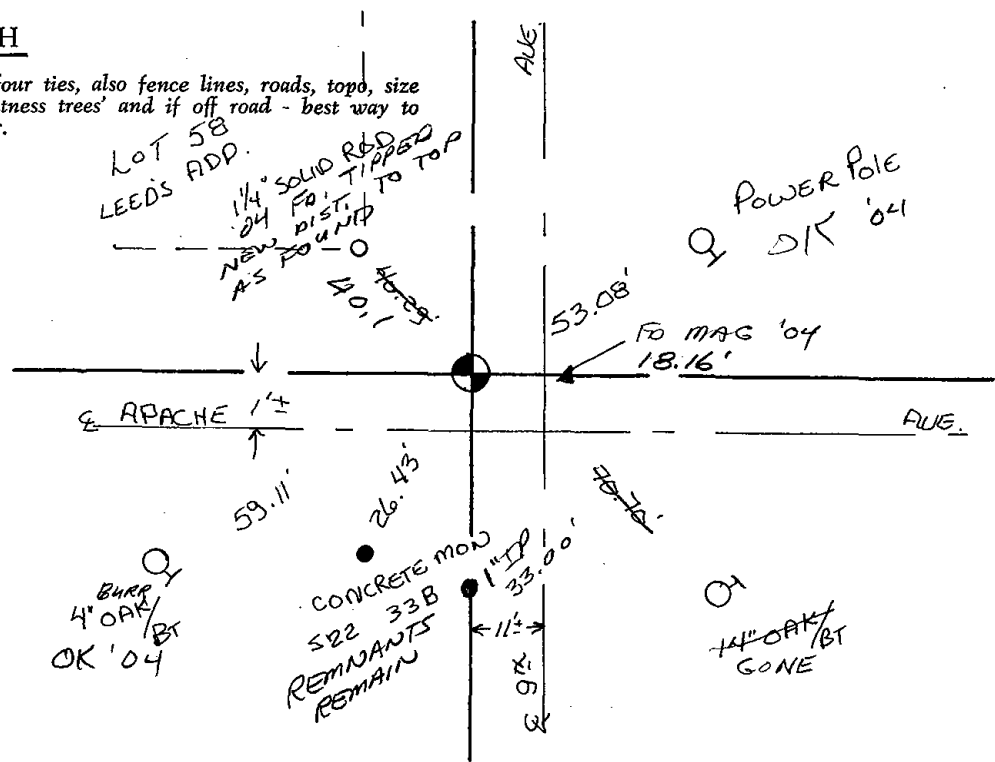 H
four ties, also fence lines, roads, topo, size
tness trees' and if off road - best way to
r.
LOT 58
LEED'S ADD.
1 1/4" SOLID ROD
'04 FD. TIPPED
NEW DIST. TO TOP
AS FOUND
40.1
40.29'
AVE.
POWER POLE
OK '04
53.08'
FD MAG '04
18.16'
℄ APACHE
1'±
AVE.
59.11'
26.43'
70.70'
BURR
4" OAK/BT
OK '04
CONCRETE MON
522 33B
REMNANTS
REMAIN
1" IP
33.00'
11'±
℄ 9TH
14" OAK/BT
GONE